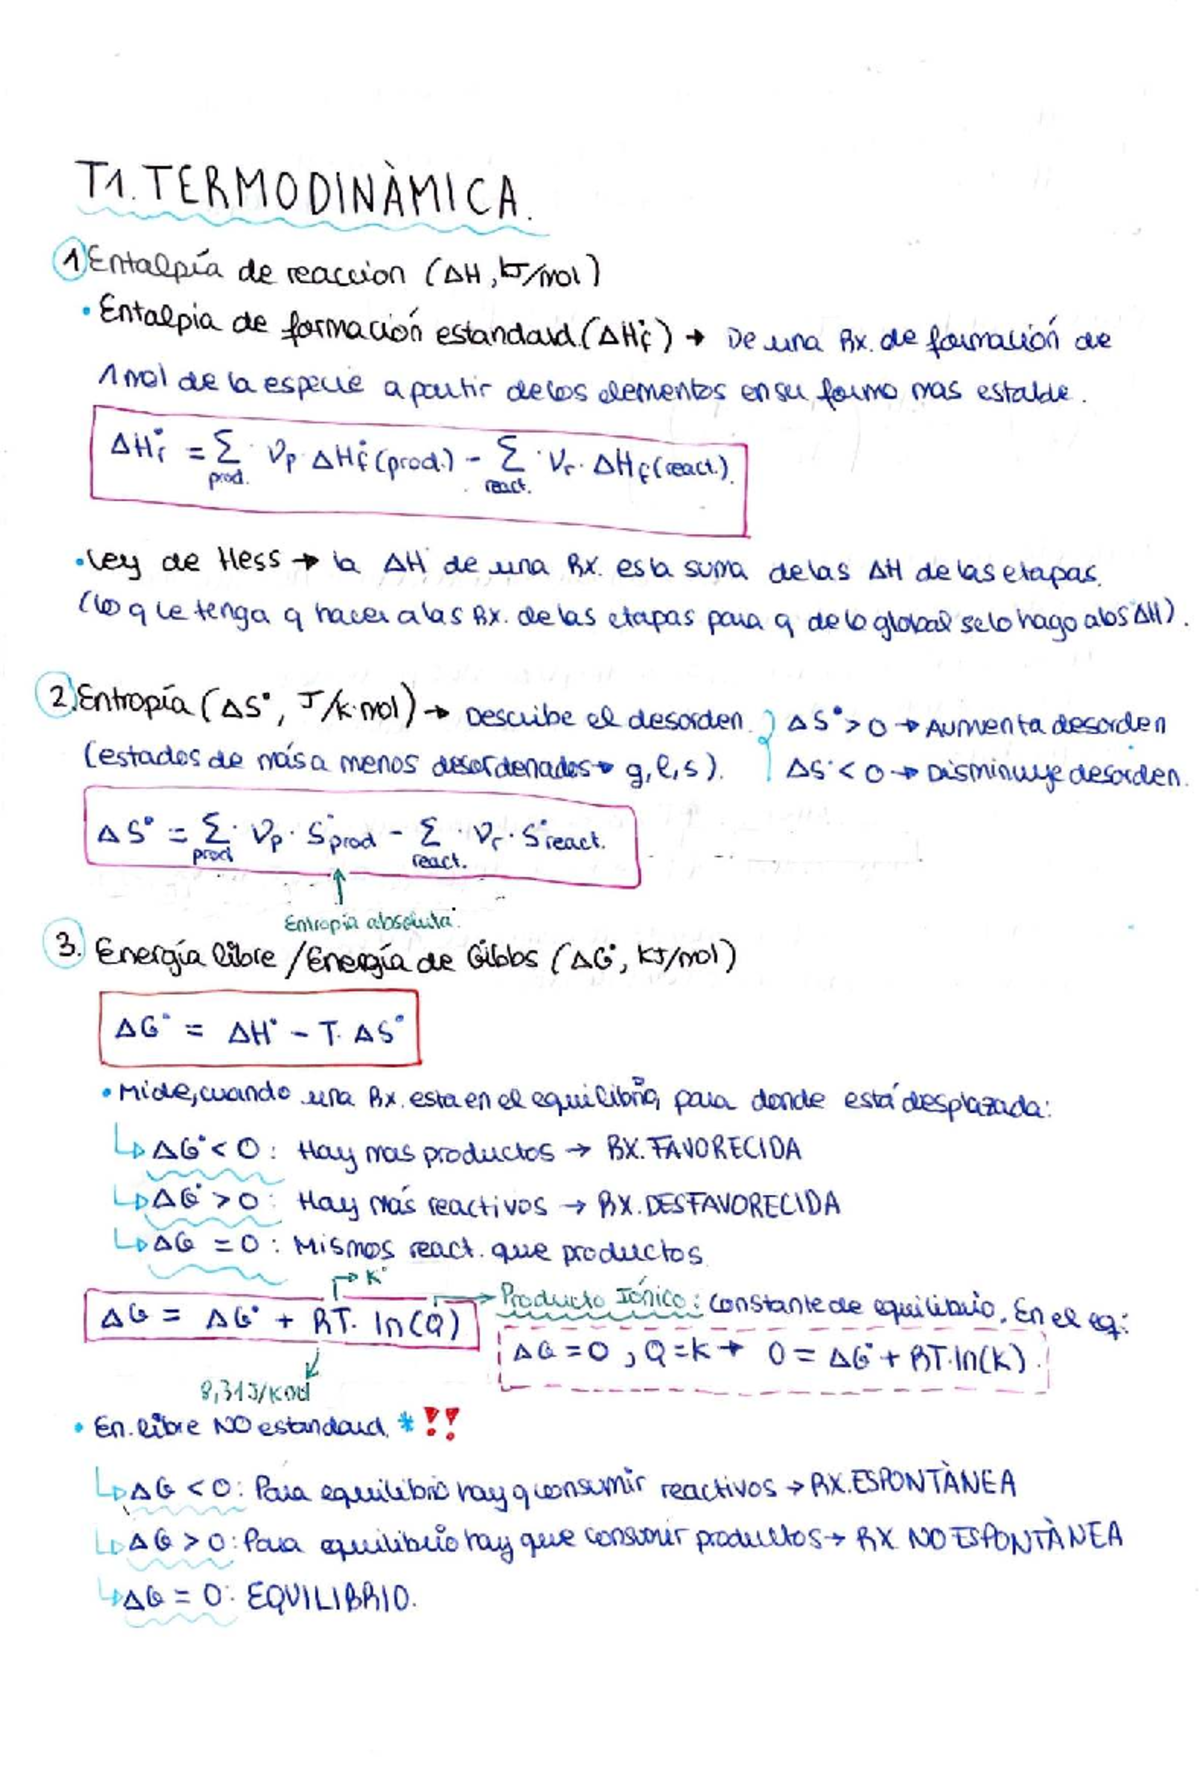 T1. TERMODINÀMICA.
1 Entalpía de reaccion (ΔH, kJ/mol)
• Entalpia de formación estandard. (ΔH°f) → De una Rx. de formación de
1 mol de la especie a partir de los elementos en su forma mas estable.
ΔH°r = Σ νp ΔH°f (prod.) - Σ νr · ΔHf (react.)
prod. react.
• Ley de Hess → la ΔH de una Rx. es la suma de las ΔH de las etapas.
(lo q le tenga q hacer a las Rx. de las etapas para q de lo global se lo hago a los ΔH).
2. Entropía (ΔS°, J/K·mol) → Describe el desorden. } ΔS° > 0 → Aumenta desorden
(estados de más a menos desordenados → g, l, s). ΔS° < 0 → Disminuye desorden.
ΔS° = Σ νp · S°prod - Σ νr · S°react.
prod react.
Entropia absoluta.
3. Energía libre / Energía de Gibbs (ΔG°, kJ/mol)
ΔG° = ΔH° - T. ΔS°
• Mide, cuando una Rx. esta en el equilibrio, para donde está desplazada:
ΔG° < 0 : Hay mas productos → RX. FAVORECIDA
ΔG° > 0 : Hay más reactivos → RX. DESFAVORECIDA
ΔG = 0 : Mismos react. que productos
K°
ΔG = ΔG° + RT. ln(Q) → Producto Iónico : constante de equilibrio. En el eq:
ΔG = 0 , Q = K → 0 = ΔG° + RT·ln(K).
8,31 J/K mol
• En. libre NO estandard. * !!
ΔG < 0 : Para equilibrio hay q consumir reactivos → RX. ESPONTÀNEA
ΔG > 0 : Para equilibrio hay que consumir productos → RX NO ESPONTÀNEA
ΔG = 0 : EQUILIBRIO.